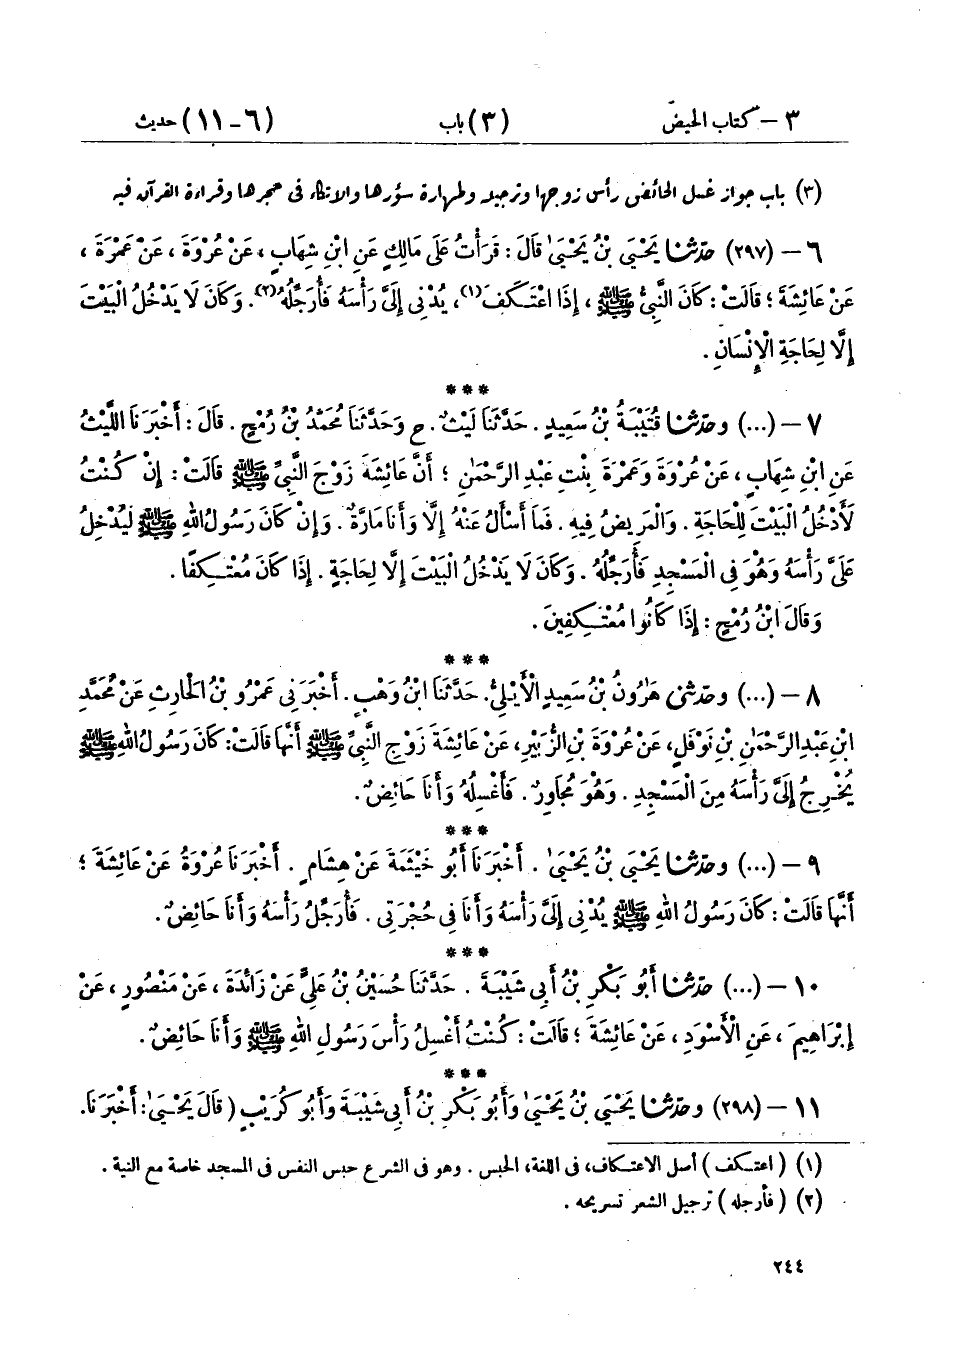 ٣ – كتاب الحيض (٣) باب (٦ – ١١) حديث
(٣) باب جواز غسل الحائض رأس زوجها وترجيله وطهارة سؤرها والاتكاء فى حجرها وقراءة القرآن فيه
٦ – (٢٩٧) حدّثنا يَحْيَىٰ بْنُ يَحْيَىٰ قَالَ : قَرَأْتُ عَلَىٰ مَالِكٍ عَنِ ابْنِ شِهَابٍ ، عَنْ عُرْوَةَ ، عَنْ عَمْرَةَ ،
عَنْ عَائِشَةَ ؛ قَالَتْ : كَانَ النَّبِيُّ ﷺ ، إِذَا اعْتَكَفَ(١)، يُدْنِي إِلَيَّ رَأْسَهُ فَأُرَجِّلُهُ(٢). وَكَانَ لَا يَدْخُلُ الْبَيْتَ
إِلَّا لِحَاجَةِ الْإِنْسَانِ .
***
٧ – (...) وحدّثنا قُتَيْبَةُ بْنُ سَعِيدٍ . حَدَّثَنَا لَيْثٌ . ح وَحَدَّثَنَا مُحَمَّدُ بْنُ رُمْحٍ . قَالَ : أَخْبَرَنَا اللَّيْثُ
عَنِ ابْنِ شِهَابٍ ، عَنْ عُرْوَةَ وَعَمْرَةَ بِنْتِ عَبْدِ الرَّحْمَٰنِ ؛ أَنَّ عَائِشَةَ زَوْجَ النَّبِيِّ ﷺ قَالَتْ : إِنْ كُنْتُ
لَأَدْخُلُ الْبَيْتَ لِلْحَاجَةِ . وَالْمَرِيضُ فِيهِ . فَمَا أَسْأَلُ عَنْهُ إِلَّا وَأَنَا مَارَّةٌ . وَإِنْ كَانَ رَسُولُ اللهِ ﷺ لَيُدْخِلُ
عَلَيَّ رَأْسَهُ وَهُوَ فِي الْمَسْجِدِ فَأُرَجِّلُهُ . وَكَانَ لَا يَدْخُلُ الْبَيْتَ إِلَّا لِحَاجَةٍ . إِذَا كَانَ مُعْتَكِفًا .
وَقَالَ ابْنُ رُمْحٍ : إِذَا كَانُوا مُعْتَكِفِينَ .
***
٨ – (...) وحدّثنى هَٰرُونُ بْنُ سَعِيدٍ الْأَيْلِيُّ. حَدَّثَنَا ابْنُ وَهْبٍ . أَخْبَرَنِي عَمْرُو بْنُ الْحَارِثِ عَنْ مُحَمَّدِ
ابْنِ عَبْدِ الرَّحْمَٰنِ بْنِ نَوْفَلٍ، عَنْ عُرْوَةَ بْنِ الزُّبَيْرِ، عَنْ عَائِشَةَ زَوْجِ النَّبِيِّ ﷺ أَنَّهَا قَالَتْ: كَانَ رَسُولُ اللهِ ﷺ
يُخْرِجُ إِلَيَّ رَأْسَهُ مِنَ الْمَسْجِدِ . وَهُوَ مُجَاوِرٌ . فَأَغْسِلُهُ وَأَنَا حَائِضٌ .
***
٩ – (...) وحدّثنا يَحْيَىٰ بْنُ يَحْيَىٰ . أَخْبَرَنَا أَبُو خَيْثَمَةَ عَنْ هِشَامٍ . أَخْبَرَنَا عُرْوَةُ عَنْ عَائِشَةَ ؛
أَنَّهَا قَالَتْ : كَانَ رَسُولُ اللهِ ﷺ يُدْنِي إِلَيَّ رَأْسَهُ وَأَنَا فِي حُجْرَتِي . فَأُرَجِّلُ رَأْسَهُ وَأَنَا حَائِضٌ .
***
١٠ – (...) حدّثنا أَبُو بَكْرِ بْنُ أَبِي شَيْبَةَ . حَدَّثَنَا حُسَيْنُ بْنُ عَلِيٍّ عَنْ زَائِدَةَ ، عَنْ مَنْصُورٍ ، عَنْ
إِبْرَاهِيمَ ، عَنِ الْأَسْوَدِ ، عَنْ عَائِشَةَ ؛ قَالَتْ : كُنْتُ أَغْسِلُ رَأْسَ رَسُولِ اللهِ ﷺ وَأَنَا حَائِضٌ .
***
١١ – (٢٩٨) وحدّثنا يَحْيَىٰ بْنُ يَحْيَىٰ وَأَبُو بَكْرِ بْنُ أَبِي شَيْبَةَ وَأَبُو كُرَيْبٍ ( قَالَ يَحْيَىٰ: أَخْبَرَنَا.
(١) ( اعتكف ) أصل الاعتكاف، فى اللغة، الحبس . وهو فى الشرع حبس النفس فى المسجد خاصة مع النية .
(٢) ( فأرجله ) ترجيل الشعر تسريحه .
٢٤٤